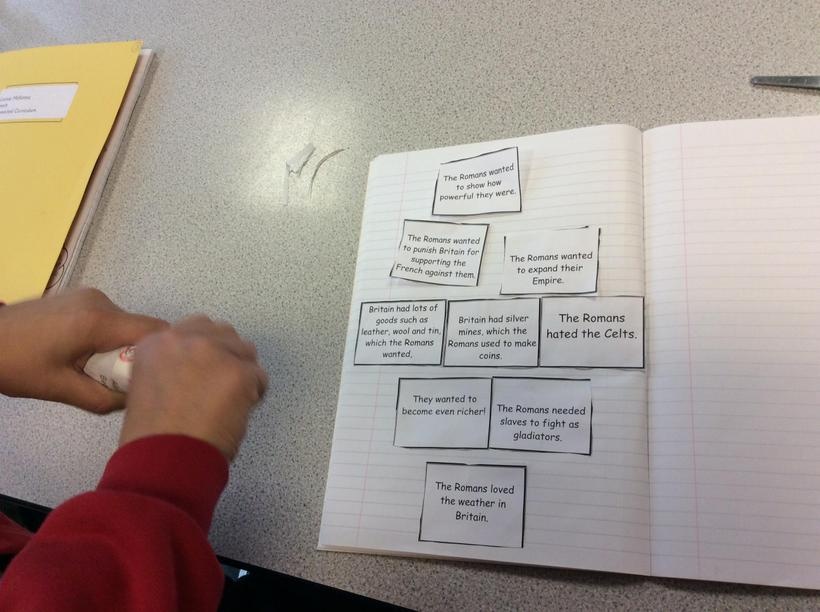 The Romans wanted
to show how
powerful they were.
The Romans wanted
to punish Britain for
supporting the
French against them.
The Romans wanted
to expand their
Empire.
Britain had lots of
goods such as
leather, wool and tin,
which the Romans
wanted,
Britain had silver
mines, which the
Romans used to make
coins.
The Romans
hated the Celts.
They wanted to
become even richer!
The Romans needed
slaves to fight as
gladiators.
The Romans loved
the weather in
Britain.